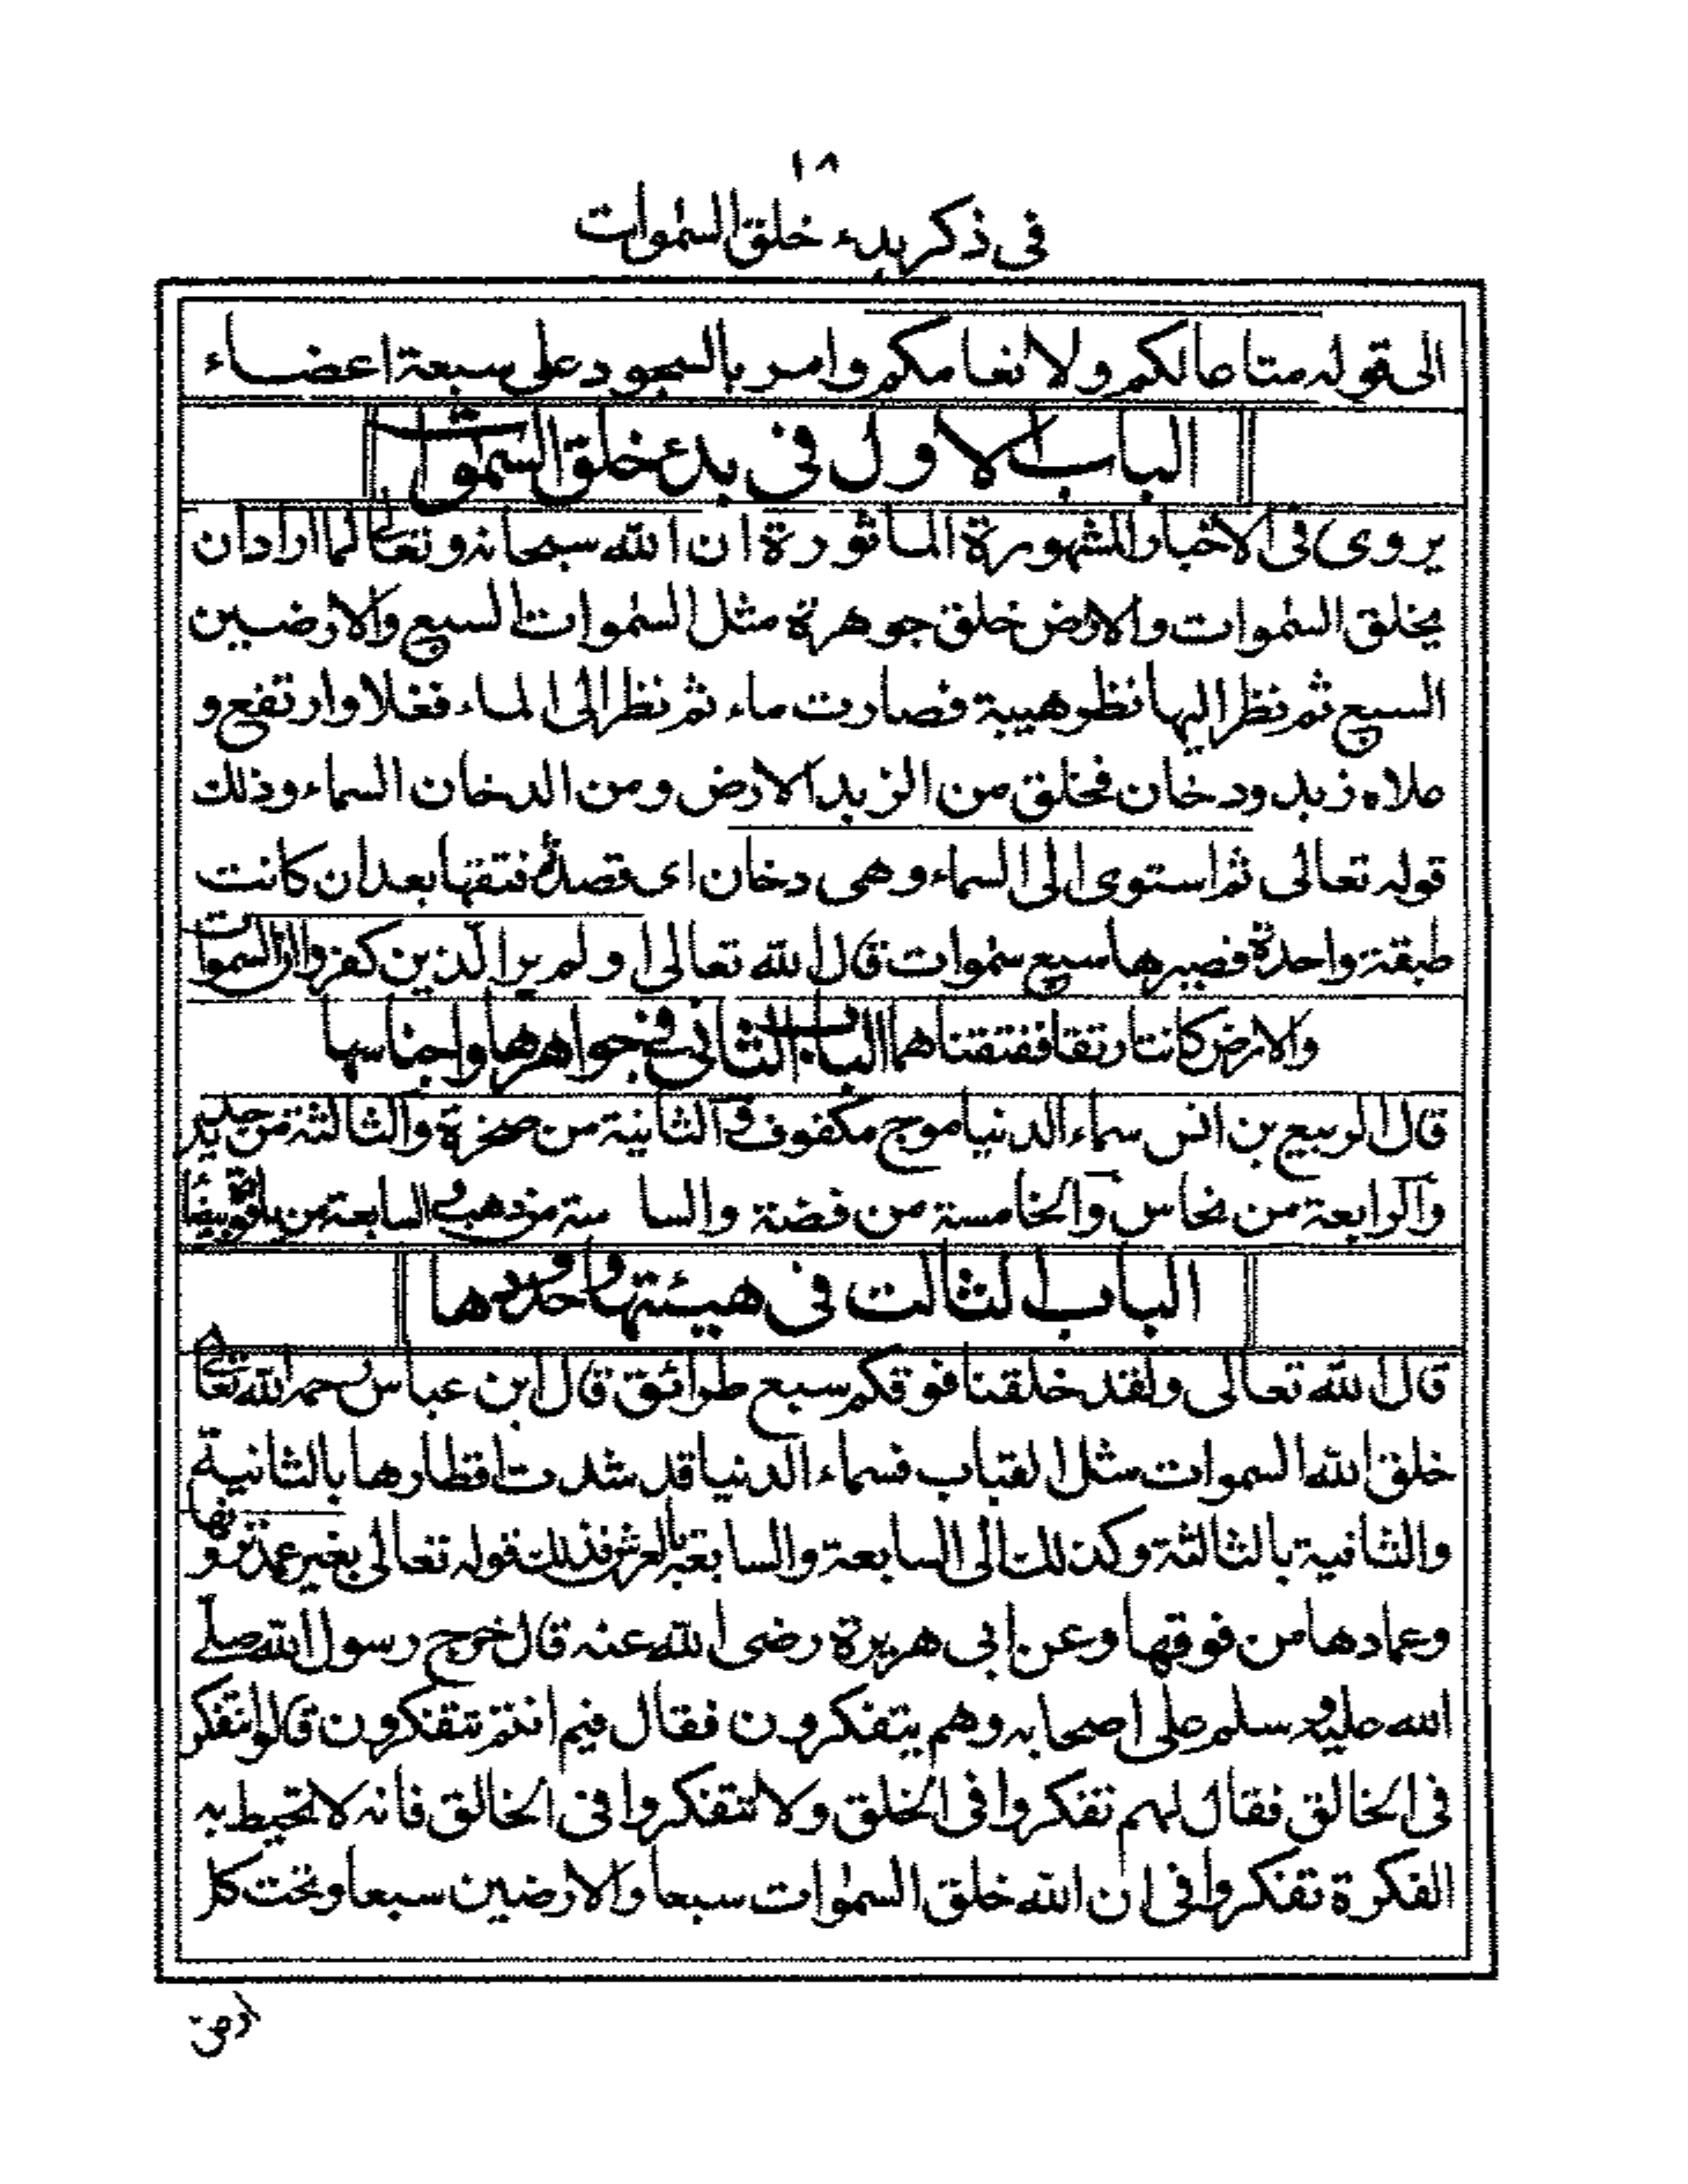 ١٨
فى ذكر بدء خلق السمٰوات
الى قوله متاعا لكم ولانعامكم وامر بالسجود على سبعة اعضاء
الباب الاول فى بدء خلق السمٰوات
يروى فى الاخبار المشهورة الماثورة ان الله سبحانه وتعالى لما اراد ان
يخلق السمٰوات والارض خلق جوهرة مثل السمٰوات السبع والارضين
السبع ثم نظر اليها نظر هيبة فصارت ماء ثم نظر الى الماء فغلا وارتفع و
علاه زبد ودخان فخلق من الزبد الارض ومن الدخان السماء وذلك
قوله تعالى ثم استوى الى السماء وهى دخان اى قصد ففتقها بعد ان كانت
طبقة واحدة فصيرها سبع سمٰوات قال الله تعالى اولم ير الذين كفروا ان السموات
والارض كانتا رتقا ففتقناهما الباب الثانى فى جواهرها واجناسها
قال الربيع بن انس سماء الدنيا موج مكفوف والثانية من صخرة والثالثة من حديد
والرابعة من نحاس والخامسة من فضة والسا سة من ذهب والسابعة من ياقوتة بيضا
الباب الثالث فى هيئتها وحدودها
قال الله تعالى ولقد خلقنا فوقكم سبع طرائق قال ابن عباس رحمه الله تعالى
خلق الله السموات مثل القباب فسماء الدنيا قد شدت اقطارها بالثانية
والثانية بالثالثة وكذلك الى السابعة والسابعة بالعرش فذلك قوله تعالى بغير عمد ترونها
وعمادها من فوقها وعن ابى هريرة رضى الله عنه قال خرج رسول الله صلے
الله عليه وسلم على اصحابه وهم يتفكرون فقال فيم انتم تتفكرون قالوا نتفكر
فى الخالق فقال لهم تفكروا فى الخلق ولا تتفكروا فى الخالق فانه لا تحيط به
الفكرة تفكروا فى ان الله خلق السمٰوات سبعا والارضين سبعا وتحت كل
ارض